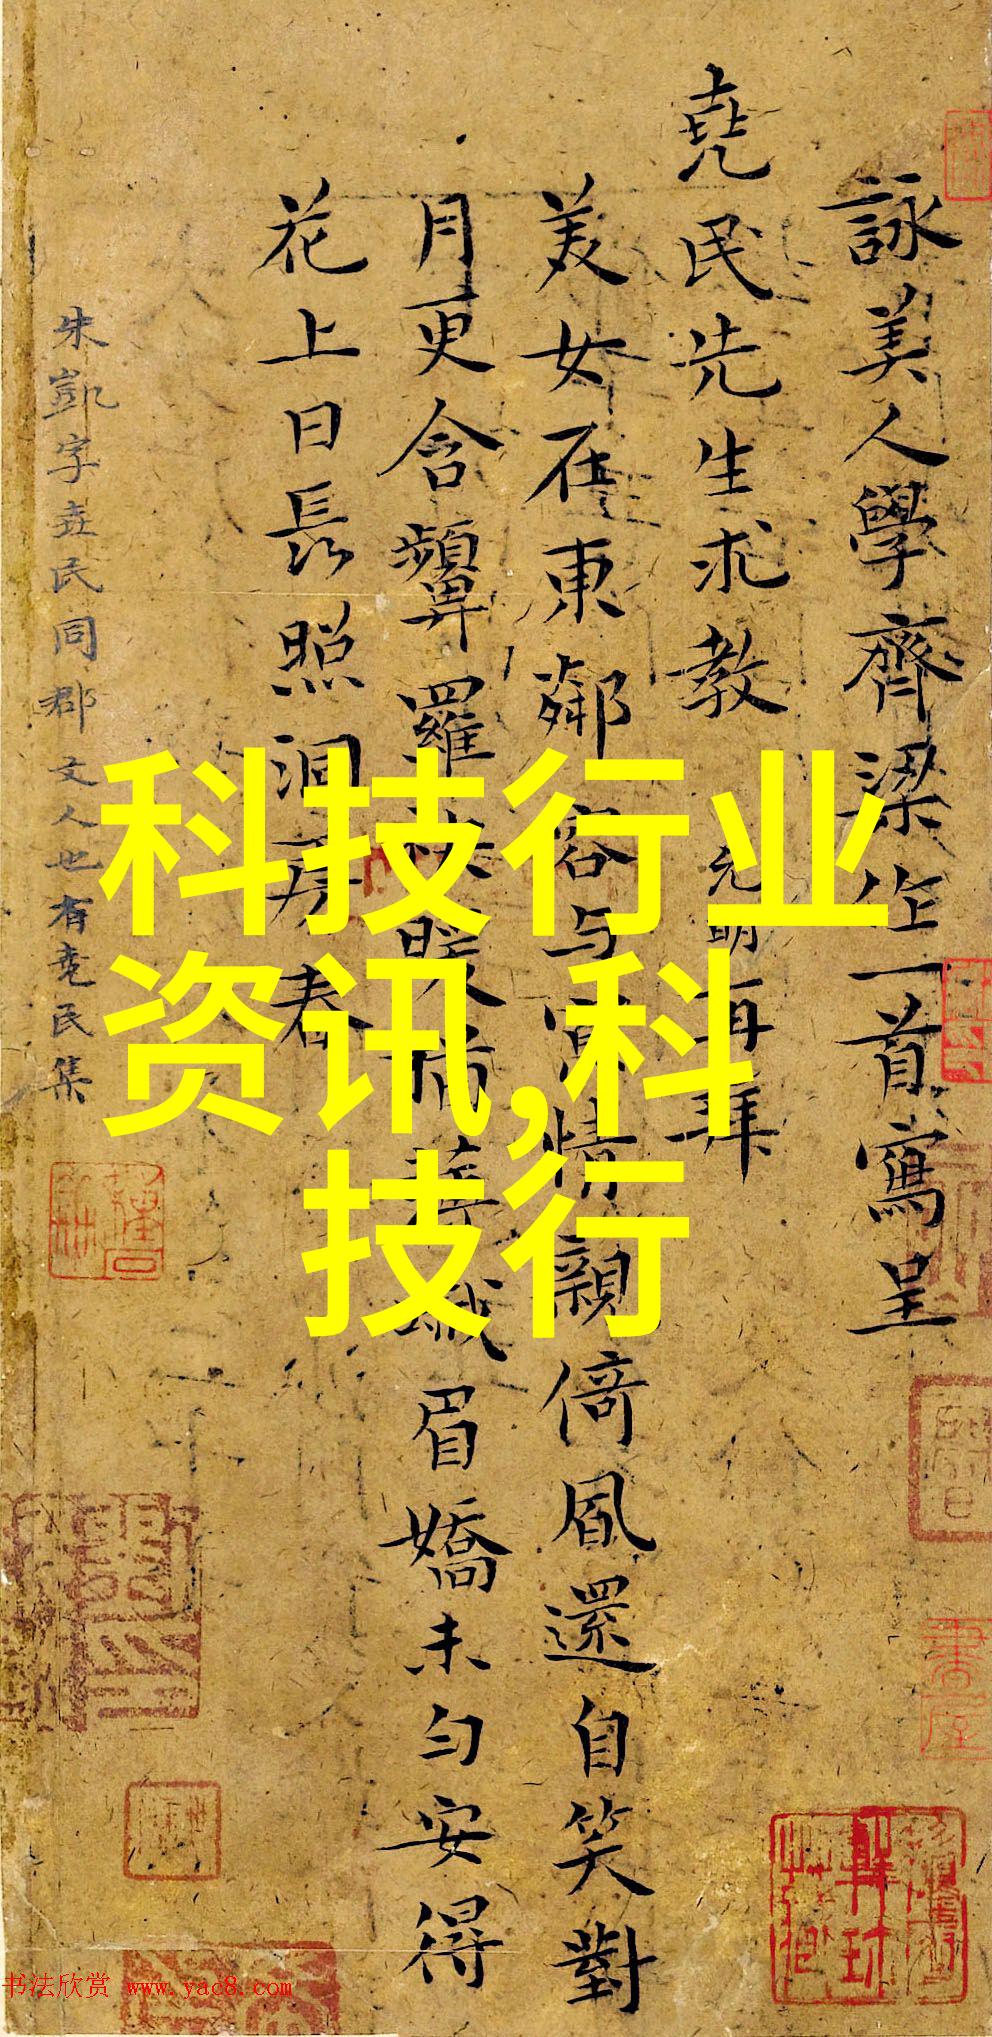 詠美人學齊梁作一首寫呈
堯民先生求教
元明再拜
美女在東鄰容与情親倚風還自笑對
月更含顰羅袂眉嬌未勻安得
花上日長照洞房春
朱凱字堯民同郡文人也有堯民集
科技行业
资讯,科
技行
书法欣赏 www.yac8.com